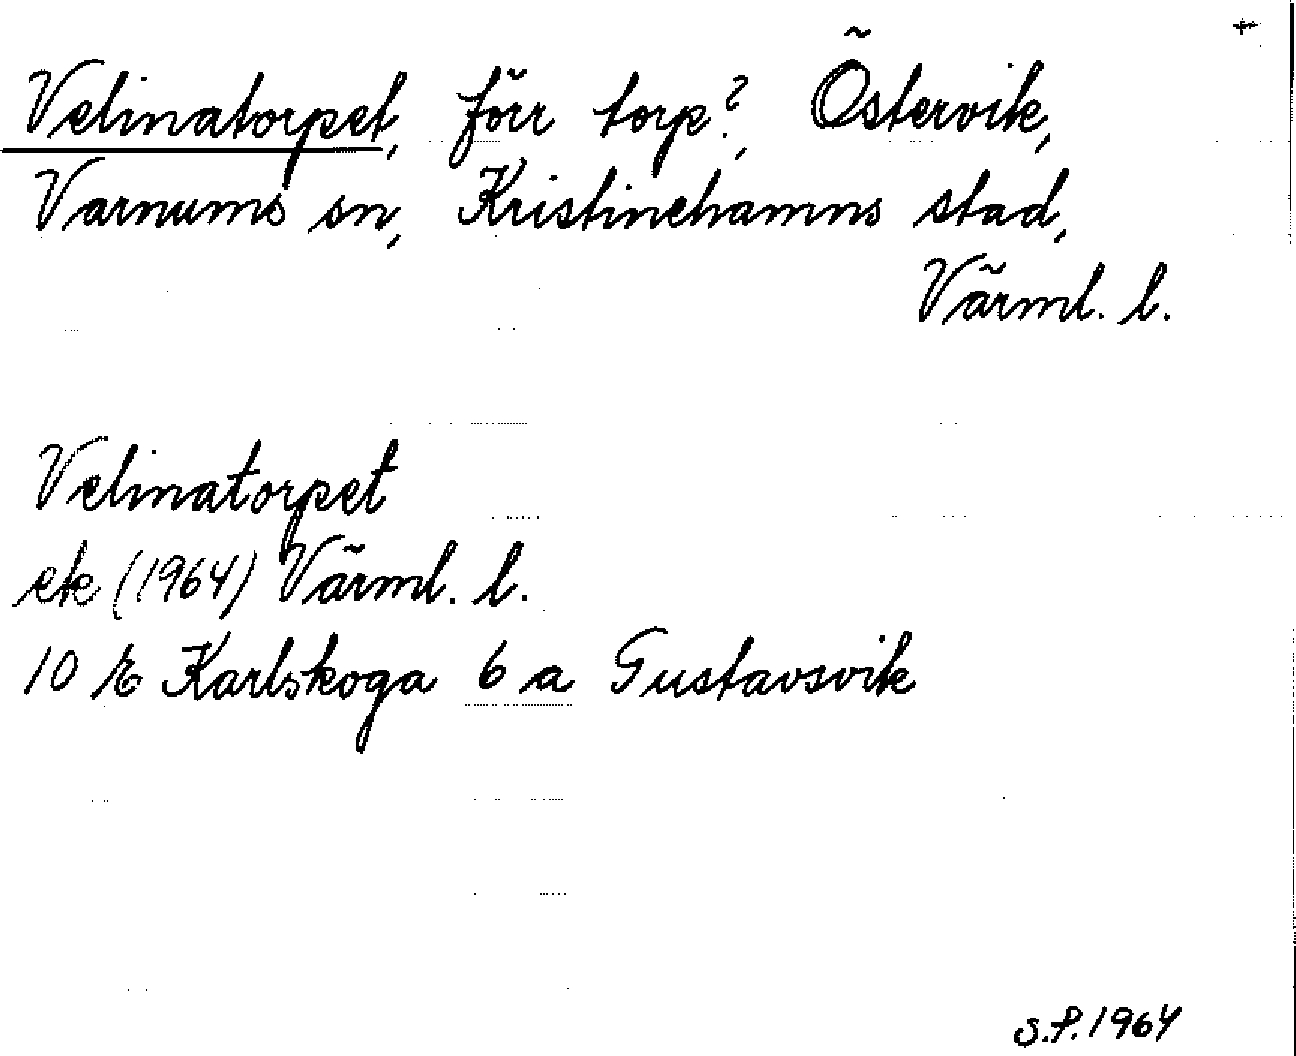 Velinatorpet, förr torp?, Östervik,
Varnums sn, Kristinehamns stad,
Värml. l.
Velinatorpet
ek (1964) Värml. l.
10 E Karlskoga 6 a Gustavsvik
S.P. 1964